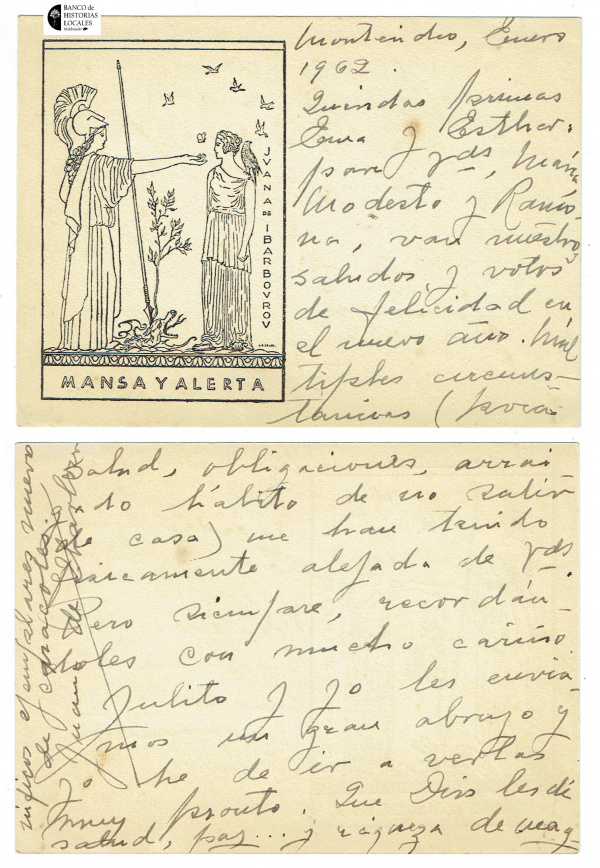 BANCO de
HISTORIAS
LOCALES
Maldonado
JVANA DE IBARBOVROV
MANSA Y ALERTA
Montevideo, Enero
1962.
Queridas primas
Ema y Esther:
para Vds, María
Modesto y Ramo-
na, van nuestros
saludos y votos
de felicidad en
el nuevo año. Múl
tiples circuns-
tancias (poca
salud, obligaciones, arrai
do hábito de no salir
de casa) me han tenido
físicamente alejada de Vds
Pero siempre, recordán-
doles con mucho cariño
Julito y yo les envia-
mos un gran abrazo y
he de ir a verlas
muy pronto. Que Dios les dé
salud, paz... y riqueza de mag
níficos ejemplares nuevo
de caracoles.
Juana de Ibarbourou